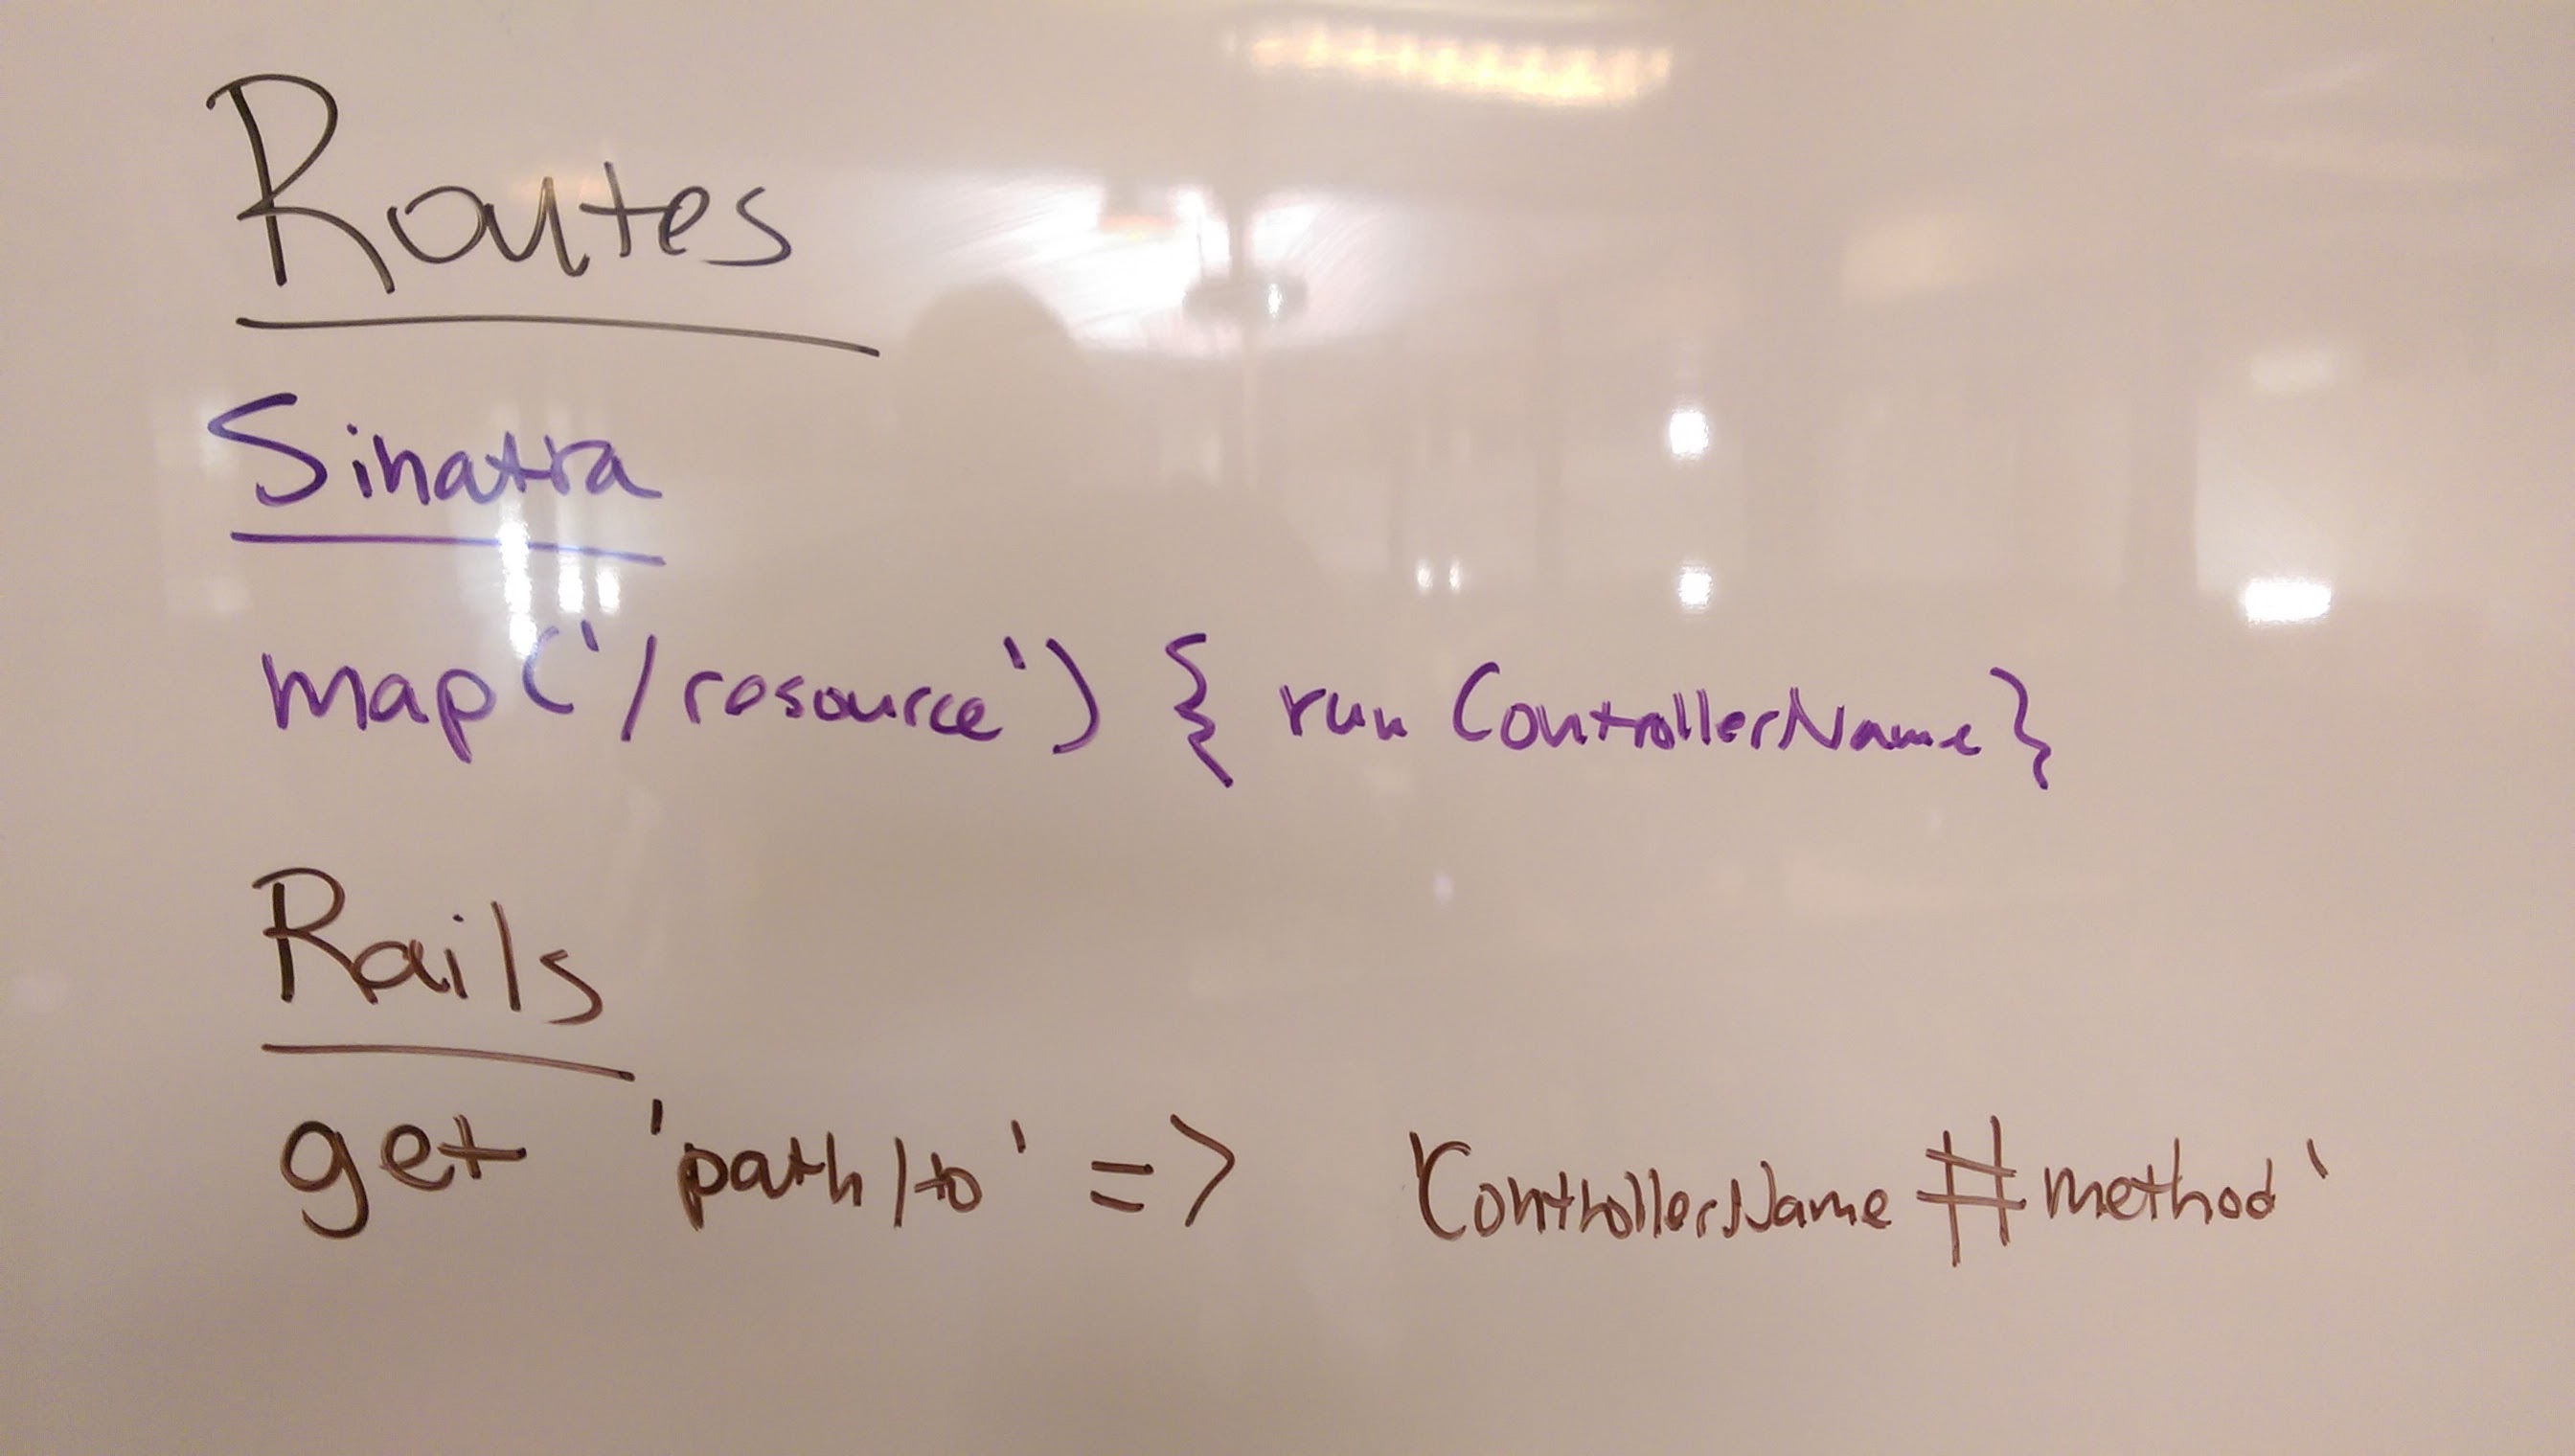 Routes
Sinatra
map('/resource') { run ControllerName}
Rails
get 'path/to' => 'ControllerName#method'